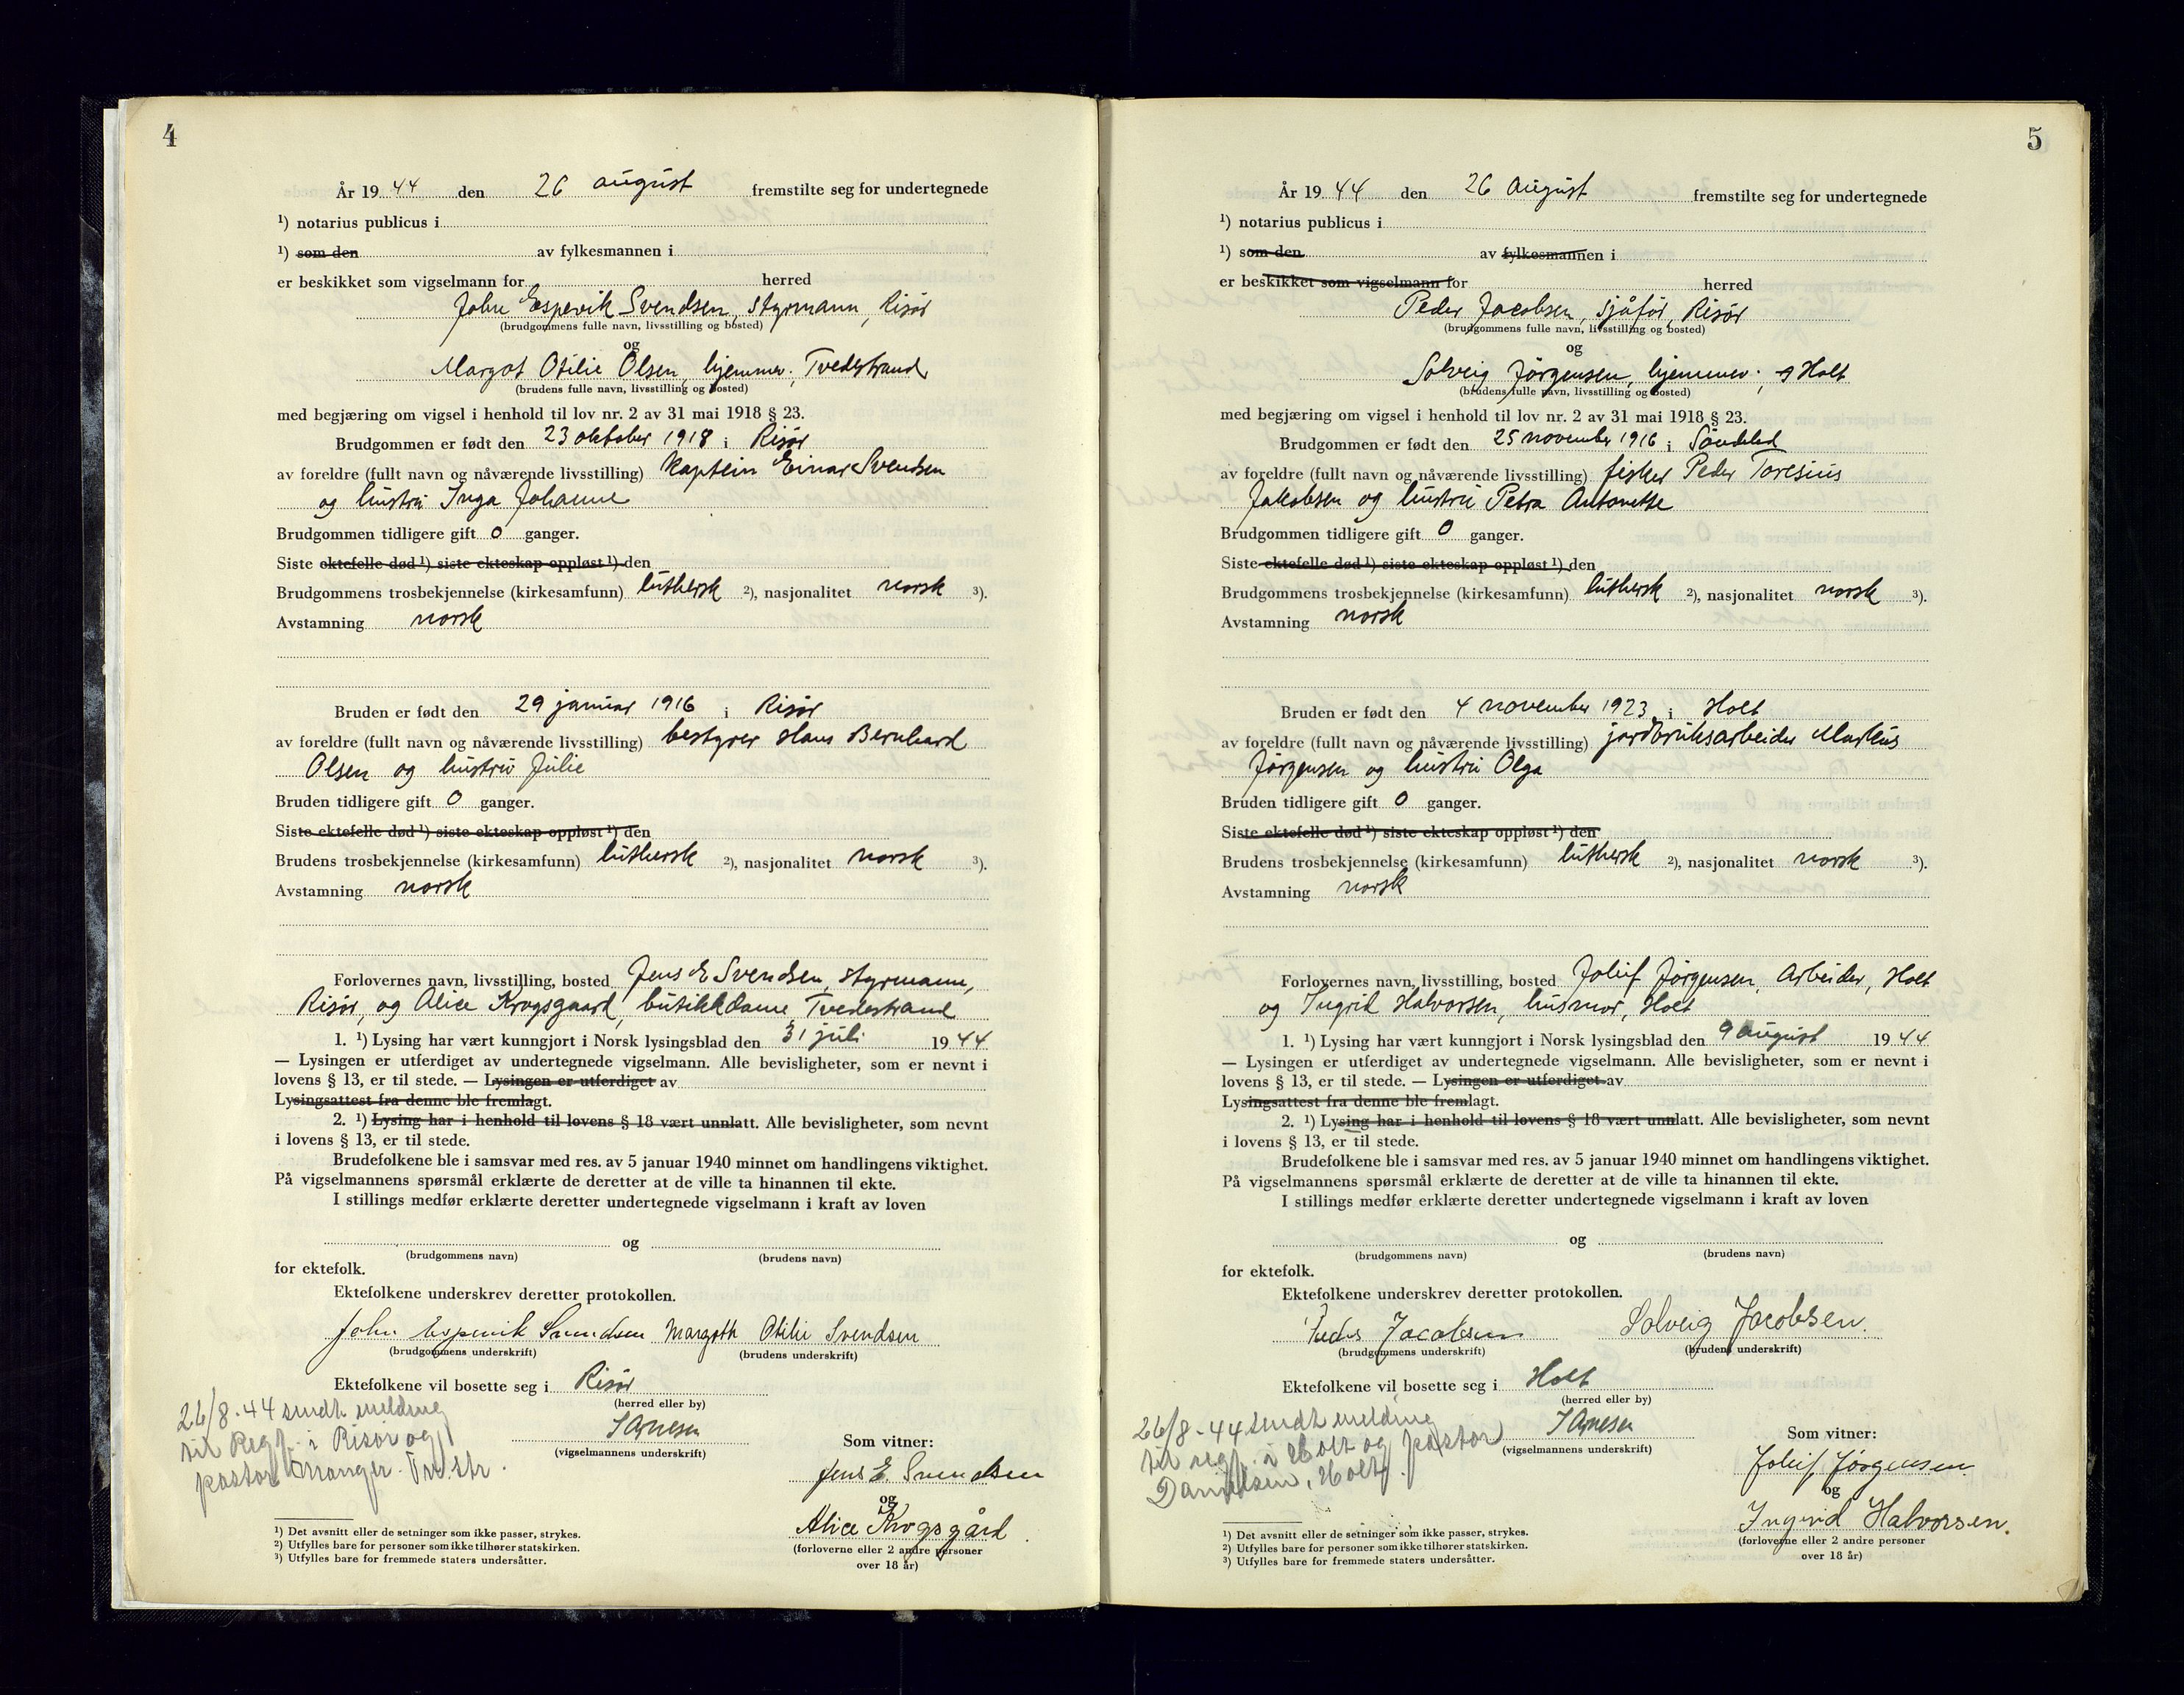 4
År 1944 den 26 august fremstilte seg for undertegnede
¹) notarius publicus i
¹) som den av fylkesmannen i
er beskikket som vigselmann for herred
John Espevik Svendsen, styrmann, Risør
(brudgommens fulle navn, livsstilling og bosted)
og
Margot Otilie Olsen, hjemmev., Tvedestrand
(brudens fulle navn, livsstilling og bosted)
med begjæring om vigsel i henhold til lov nr. 2 av 31 mai 1918 § 23.
Brudgommen er født den 23 oktober 1918 i Risør
av foreldre (fullt navn og nåværende livsstilling) Kaptein Einar Svendsen
og hustru Inga Johanne
Brudgommen tidligere gift 0 ganger.
Siste ektefelle død ¹) siste ekteskap oppløst ¹) den
Brudgommens trosbekjennelse (kirkesamfunn) luthersk ²), nasjonalitet norsk ³).
Avstamning norsk
Bruden er født den 29 januar 1916 i Risør
av foreldre (fullt navn og nåværende livsstilling) bestyrer Hans Bernhard
Olsen og hustru Julie
Bruden tidligere gift 0 ganger.
Siste ektefelle død ¹) siste ekteskap oppløst ¹) den
Brudens trosbekjennelse (kirkesamfunn) luthersk ²), nasjonalitet norsk ³).
Avstamning norsk
Forlovernes navn, livsstilling, bosted Jens E Svendsen, styrmann,
Risør, og Alice Krogsgaard, butikkdame Tvedestrand
1. ¹) Lysing har vært kunngjort i Norsk lysingsblad den 31 juli 1944
— Lysingen er utferdiget av undertegnede vigselmann. Alle bevisligheter, som er nevnt i
lovens § 13, er til stede. — Lysingen er utferdiget av
Lysingsattest fra denne ble fremlagt.
2. ¹) Lysing har i henhold til lovens § 18 vært unnlatt. Alle bevisligheter, som nevnt
i lovens § 13, er til stede.
Brudefolkene ble i samsvar med res. av 5 januar 1940 minnet om handlingens viktighet.
På vigselmannens spørsmål erklærte de deretter at de ville ta hinannen til ekte.
I stillings medfør erklærte deretter undertegnede vigselmann i kraft av loven
og
(brudgommens navn) (brudens navn)
for ektefolk.
Ektefolkene underskrev deretter protokollen.
John Espevik Svendsen Margoth Otilie Svendsen
(brudgommens underskrift) (brudens underskrift)
Ektefolkene vil bosette seg i Risør
(herred eller by)
26/8-44 sendt melding
til Regf. i Risør og
pastor
(vigselmannens underskrift)
Som vitner:
Jens E. Svendsen
og
Alice Krogsgård
(forloverne eller 2 andre personer
over 18 år)
¹) Det avsnitt eller de setninger som ikke passer, strykes.
²) Utfylles bare for personer som ikke tilhører statskirken.
³) Utfylles bare for fremmede staters undersåtter.
5
År 1944 den 26 august fremstilte seg for undertegnede
¹) notarius publicus i
¹) som den av fylkesmannen i
er beskikket som vigselmann for herred
Peder Jacobsen, sjåfør, Risør
(brudgommens fulle navn, livsstilling og bosted)
og
Solveig Jørgensen, hjemmev., Holt
(brudens fulle navn, livsstilling og bosted)
med begjæring om vigsel i henhold til lov nr. 2 av 31 mai 1918 § 23.
Brudgommen er født den 25 november 1916 i Søndeled
av foreldre (fullt navn og nåværende livsstilling) fisker Peder Toresius
Jakobsen og hustru Petra Antonette
Brudgommen tidligere gift 0 ganger.
Siste ektefelle død ¹) siste ekteskap oppløst ¹) den
Brudgommens trosbekjennelse (kirkesamfunn) luthersk ²), nasjonalitet norsk ³).
Avstamning norsk
Bruden er født den 4 november 1923 i Holt
av foreldre (fullt navn og nåværende livsstilling) jordbruksarbeider Markus
Jørgensen og hustru Olga
Bruden tidligere gift 0 ganger.
Siste ektefelle død ¹) siste ekteskap oppløst ¹) den
Brudens trosbekjennelse (kirkesamfunn) luthersk ²), nasjonalitet norsk ³).
Avstamning norsk
Forlovernes navn, livsstilling, bosted Joleif Jørgensen, Arbeider, Holt
og Ingrid Halvorsen, husmor, Holt
1. ¹) Lysing har vært kunngjort i Norsk lysingsblad den 9 august 1944
— Lysingen er utferdiget av undertegnede vigselmann. Alle bevisligheter, som er nevnt i
lovens § 13, er til stede. — Lysingen er utferdiget av
Lysingsattest fra denne ble fremlagt.
2. ¹) Lysing har i henhold til lovens § 18 vært unnlatt. Alle bevisligheter, som nevnt
i lovens § 13, er til stede.
Brudefolkene ble i samsvar med res. av 5 januar 1940 minnet om handlingens viktighet.
På vigselmannens spørsmål erklærte de deretter at de ville ta hinannen til ekte.
I stillings medfør erklærte deretter undertegnede vigselmann i kraft av loven
og
(brudgommens navn) (brudens navn)
for ektefolk.
Ektefolkene underskrev deretter protokollen.
Peder Jacobsen Solveig Jacobsen.
(brudgommens underskrift) (brudens underskrift)
Ektefolkene vil bosette seg i Holt
(herred eller by)
26/8-44 sendt melding
til regf. i Holt og pastor
Danielsen, Holt
(vigselmannens underskrift)
Som vitner:
Joleif Jørgensen
og
Ingrid Halvorsen.
(forloverne eller 2 andre personer
over 18 år)
¹) Det avsnitt eller de setninger som ikke passer, strykes.
²) Utfylles bare for personer som ikke tilhører statskirken.
³) Utfylles bare for fremmede staters undersåtter.